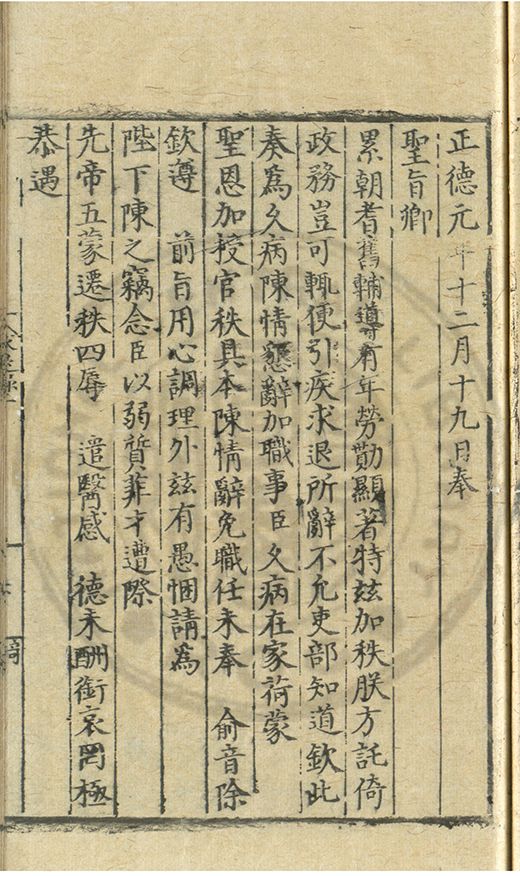 正德元年十二月十九日奉
聖旨卿
累朝耆舊輔導有年勞勩顯著特玆加秩朕方託倚
政務豈可輒便引疾求退所辭不允吏部知道欽此
奏爲久病陳情懇辭加職事臣久病在家荷蒙
聖恩加授官秩具本陳情辭免職任未奉 俞音除
欽遵 前旨用心調理外玆有愚悃請爲
陛下陳之竊念臣以弱質菲才遭際
先帝五蒙遷秩四辱 遣醫感 德未酬銜哀罔極
恭遇